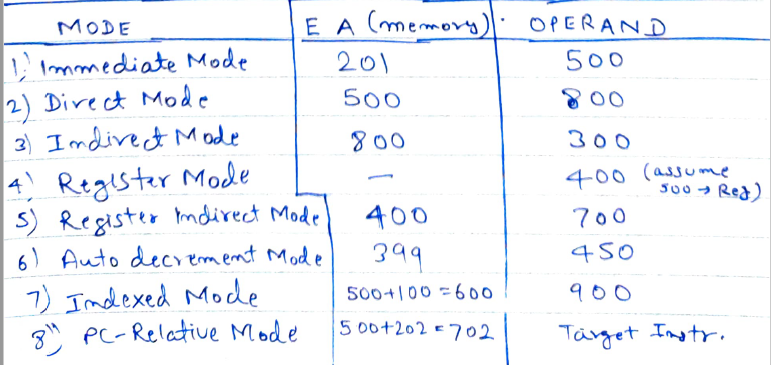 MODE E A (memory). OPERAND
1) Immediate Mode 201 500
2) Direct Mode 500 800
3) Indirect Mode 800 300
4) Register Mode — 400 (assume
500 → Reg)
5) Register Indirect Mode 400 700
6) Auto decrement Mode 399 450
7) Indexed Mode 500+100 = 600 900
8) PC-Relative Mode 500+202 = 702 Target Instr.